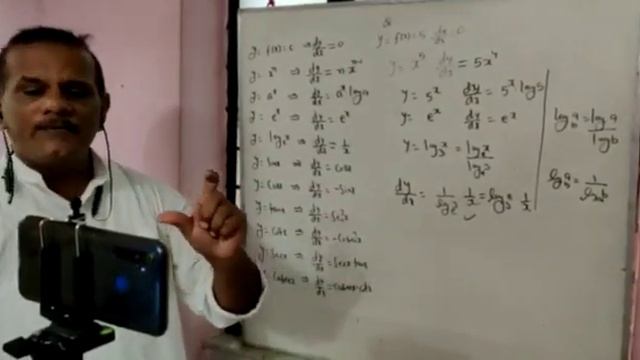 y = f(x) = c ⇒ dy/dx = 0
y = xⁿ ⇒ dy/dx = n xⁿ⁻¹
y = aˣ ⇒ dy/dx = aˣ log a
y = eˣ ⇒ dy/dx = eˣ
y = logₑx ⇒ dy/dx = 1/x
y = sinx ⇒ dy/dx = cosx
y = cosx ⇒ dy/dx = -sinx
y = tanx ⇒ dy/dx = sec²x
y = cotx ⇒ dy/dx = -cosec²x
y = secx ⇒ dy/dx = secx tanx
cosecx ⇒ dy/dx =
y = f(x) = 5 dy/dx = 0
y = x⁵ dy/dx = 5x⁴
y = 5ˣ dy/dx = 5ˣ log 5
y = eˣ dy/dx = eˣ
y = log₃x = logₑx/logₑ3
dy/dx = 1/x 1/x
log a = log a/log b